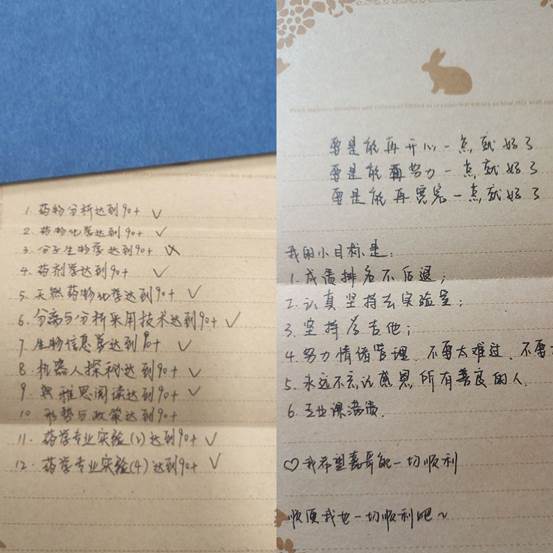 1. 药物分析达到90+ ✓
2. 药物化学达到90+ ✓
3. 分子生物学达到90+ ✗
4. 药剂学达到90+ ✓
5. 天然药物化学达到90+ ✓
6. 分离与分析实用技术达到90+ ✓
7. 生物信息学达到90+ ✓
8. 机器人探秘达到90+ ✓
9. 雅思阅读达到90+ ✓
10. 形势与政策达到90+
11. 药学专业实验(3)达到90+ ✓
12. 药学专业实验(4)达到90+ ✓
要是能再开心一点就好了
要是能再努力一点就好了
要是能再宽容一点就好了
我的小目标是:
1. 成绩排名不后退;
2. 认真坚持去实验室;
3. 坚持学吉他;
4. 努力情绪管理,不要太难过,不要
5. 永远不忘记感恩所有善良的人.
6. 专业课满绩.
♡我希望嘉哥能一切顺利
顺便我也一切顺利吧~